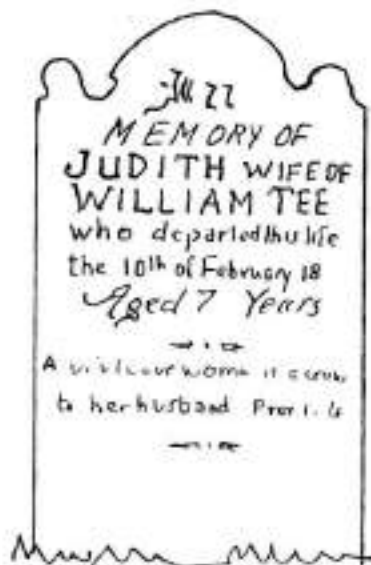 MEMORY OF
JUDITH WIFE OF
WILLIAM TEE
who departed this life
the 10th of February 18
Aged 7 Years
A woman is a
to her husband